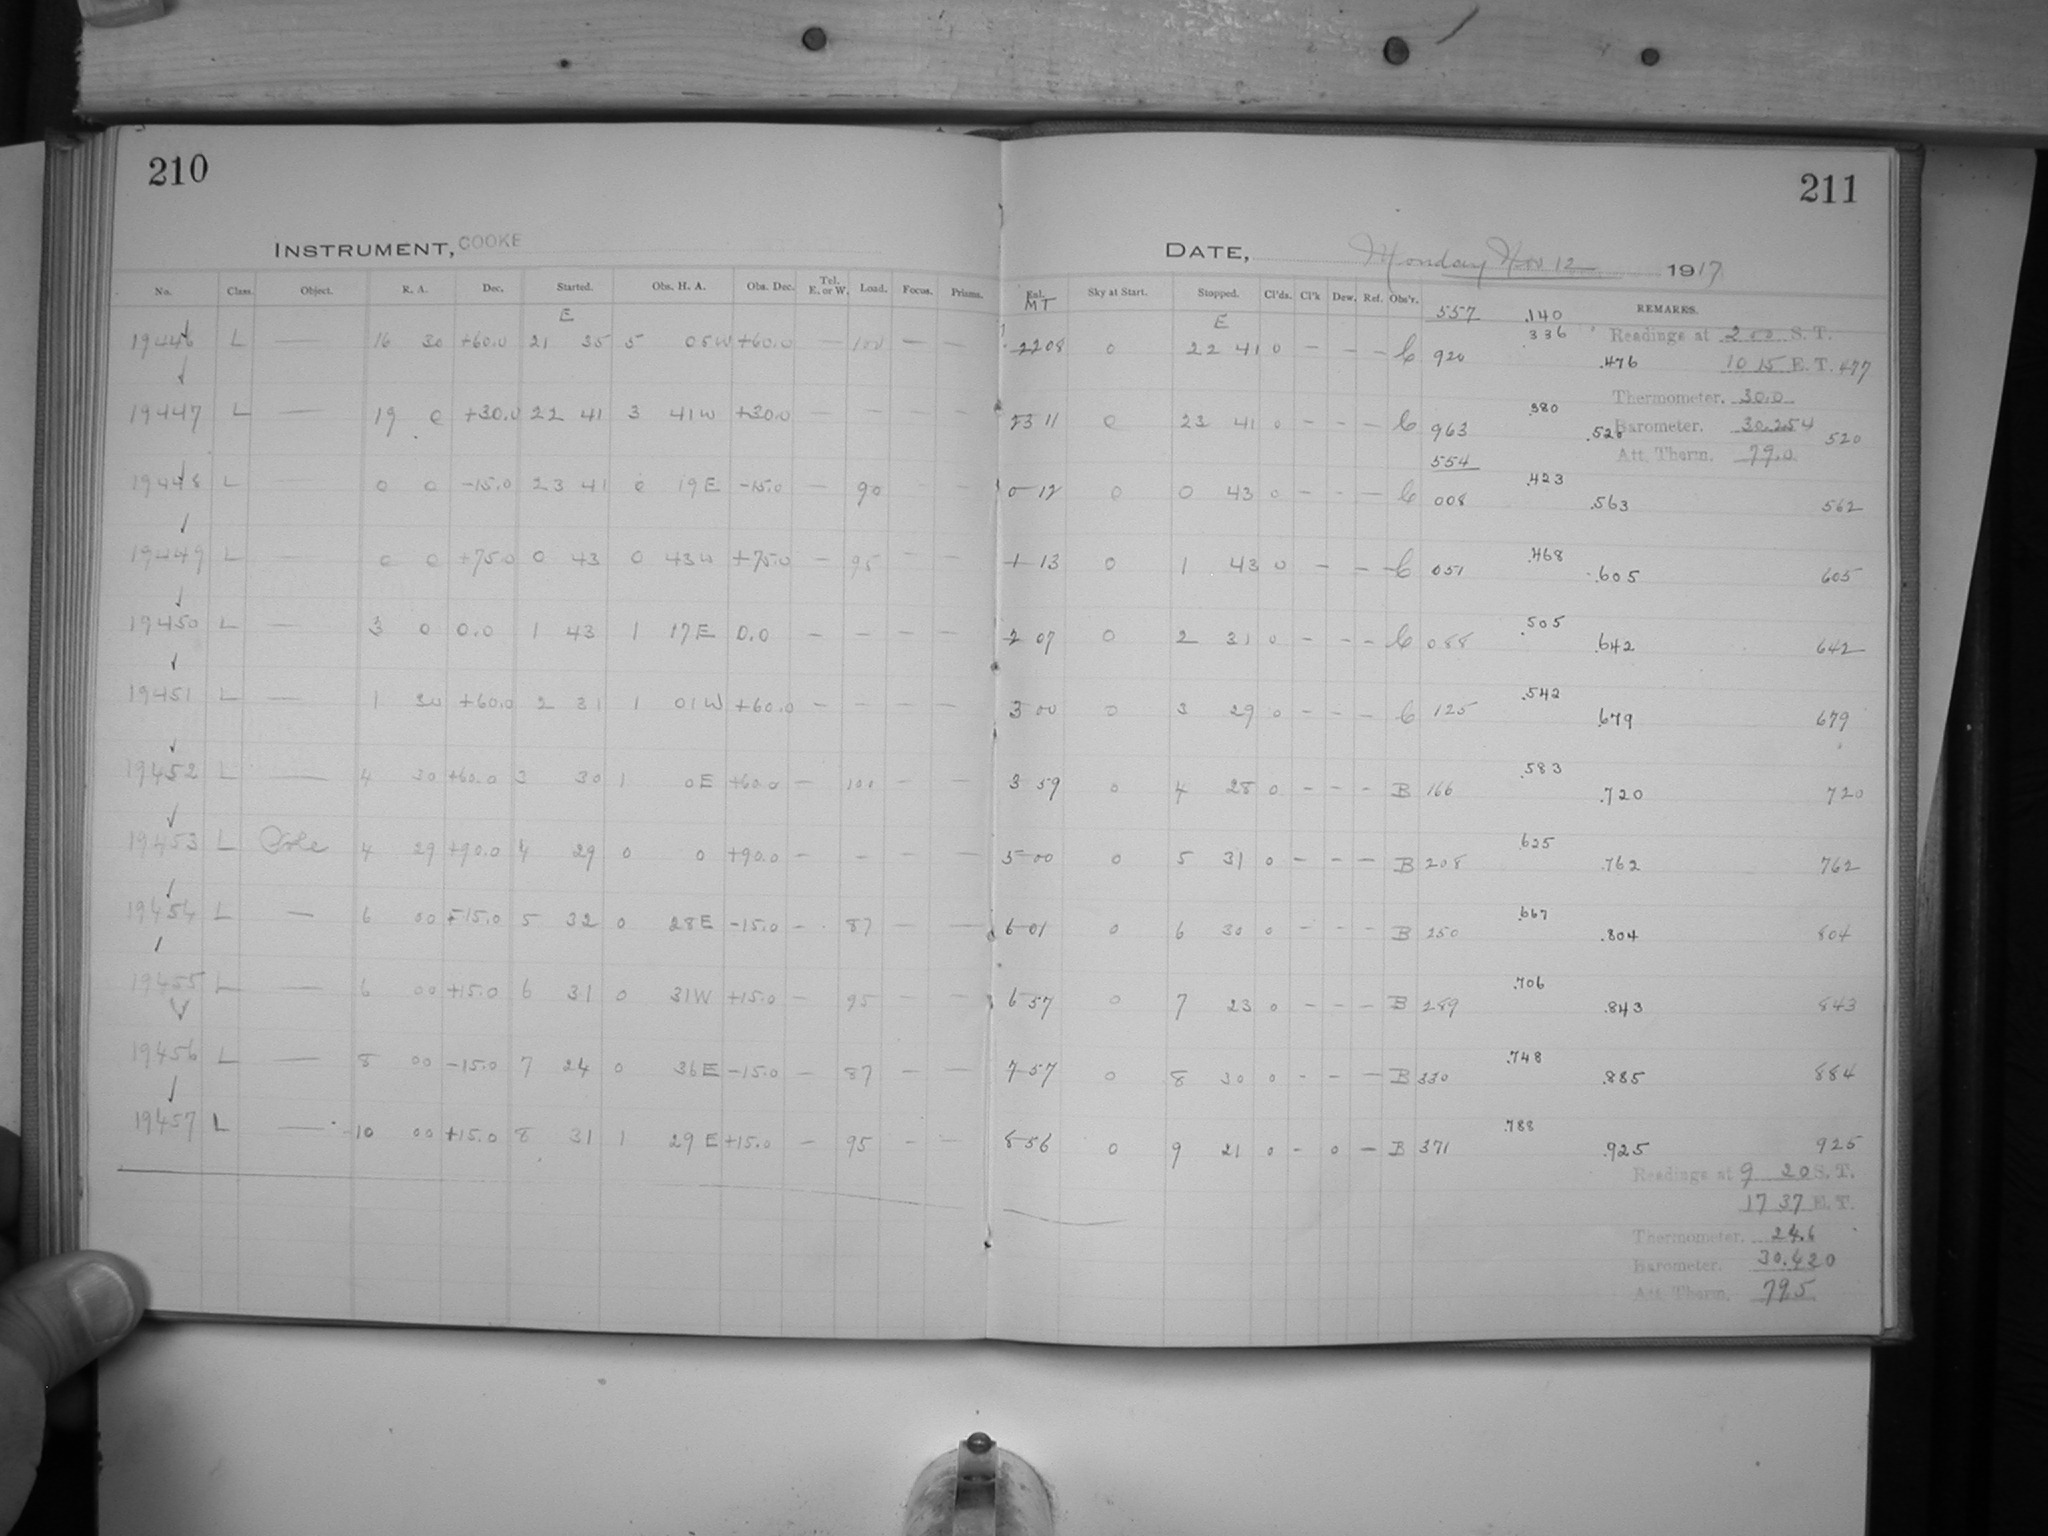 210
INSTRUMENT, COOKE
No. Class. Object. R. A. Dec. Started. Obs. H. A. Obs. Dec. Tel. E. or W. Load. Focus. Prisms.
E
19446 L — 16 30 +60.0 21 35 5 05W +60.0 — 100 — —
19447 L — 19 0 +30.0 22 41 3 41W +30.0 — — — —
19448 L — 0 0 -15.0 23 41 0 19E -15.0 — 90 — —
19449 L — 0 0 +75.0 0 43 0 43W +75.0 — 95 — —
19450 L — 3 0 0.0 1 43 1 17E 0.0 — — — —
19451 L — 1 30 +60.0 2 31 1 01W +60.0 — — — —
19452 L — 4 30 +60.0 3 30 1 0E +60.0 — 100 — —
19453 L Pole 4 29 +90.0 4 29 0 0 +90.0 — — — —
19454 L — 6 00 -15.0 5 32 0 28E -15.0 — 87 — —
19455 L — 6 00 +15.0 6 31 0 31W +15.0 — 95 — —
19456 L — 8 00 -15.0 7 24 0 36E -15.0 — 87 — —
19457 L — 10 00 +15.0 8 31 1 29E +15.0 — 95 — —
211
DATE, Monday Nov 12 1917
MT Sky at Start. Stopped. Cl'ds. Cl'k Dew. Ref. Obs'r. 557 .140 REMARKS.
E .336 Readings at 2 00 S. T.
22 08 0 22 41 0 — — — C 920 .476 10 15 E. T. 477
Thermometer. 30.0
.380
23 11 0 23 41 0 — — — C 963 .520 Barometer. 30.254 520
554 Att. Therm. 79.0
.423
0 12 0 0 43 0 — — — C 008 .563 562
.468
1 13 0 1 43 0 — — — C 051 .605 605
.505
2 07 0 2 31 0 — — — C 088 .642 642
.542
3 00 0 3 29 0 — — — C 125 .679 679
.583
3 59 0 4 28 0 — — — B 166 .720 720
.625
5 00 0 5 31 0 — — — B 208 .762 762
.667
6 01 0 6 30 0 — — — B 250 .804 804
.706
6 57 0 7 23 0 — — — B 289 .843 843
.748
7 57 0 8 30 0 — — — B 330 .885 884
.788
8 56 0 9 21 0 — 0 — B 371 .925 925
Readings at 9 20 S. T.
17 37 E. T.
Thermometer. 24.6
Barometer. 30.420
Att. Therm. 79.5